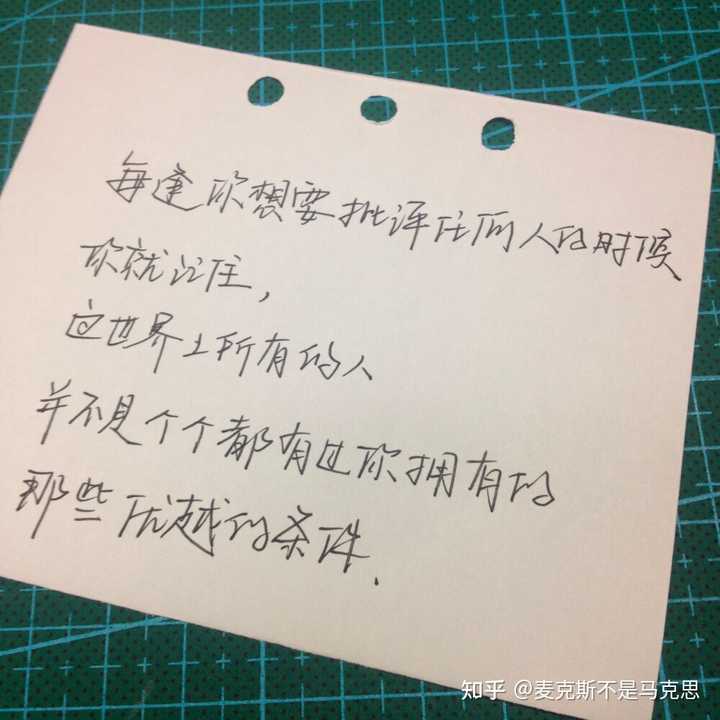 每逢你想要批评任何人的时候
你就记住，
这世界上所有的人
并不是个个都有过你拥有的
那些优越的条件.
知乎 @麦克斯不是马克思